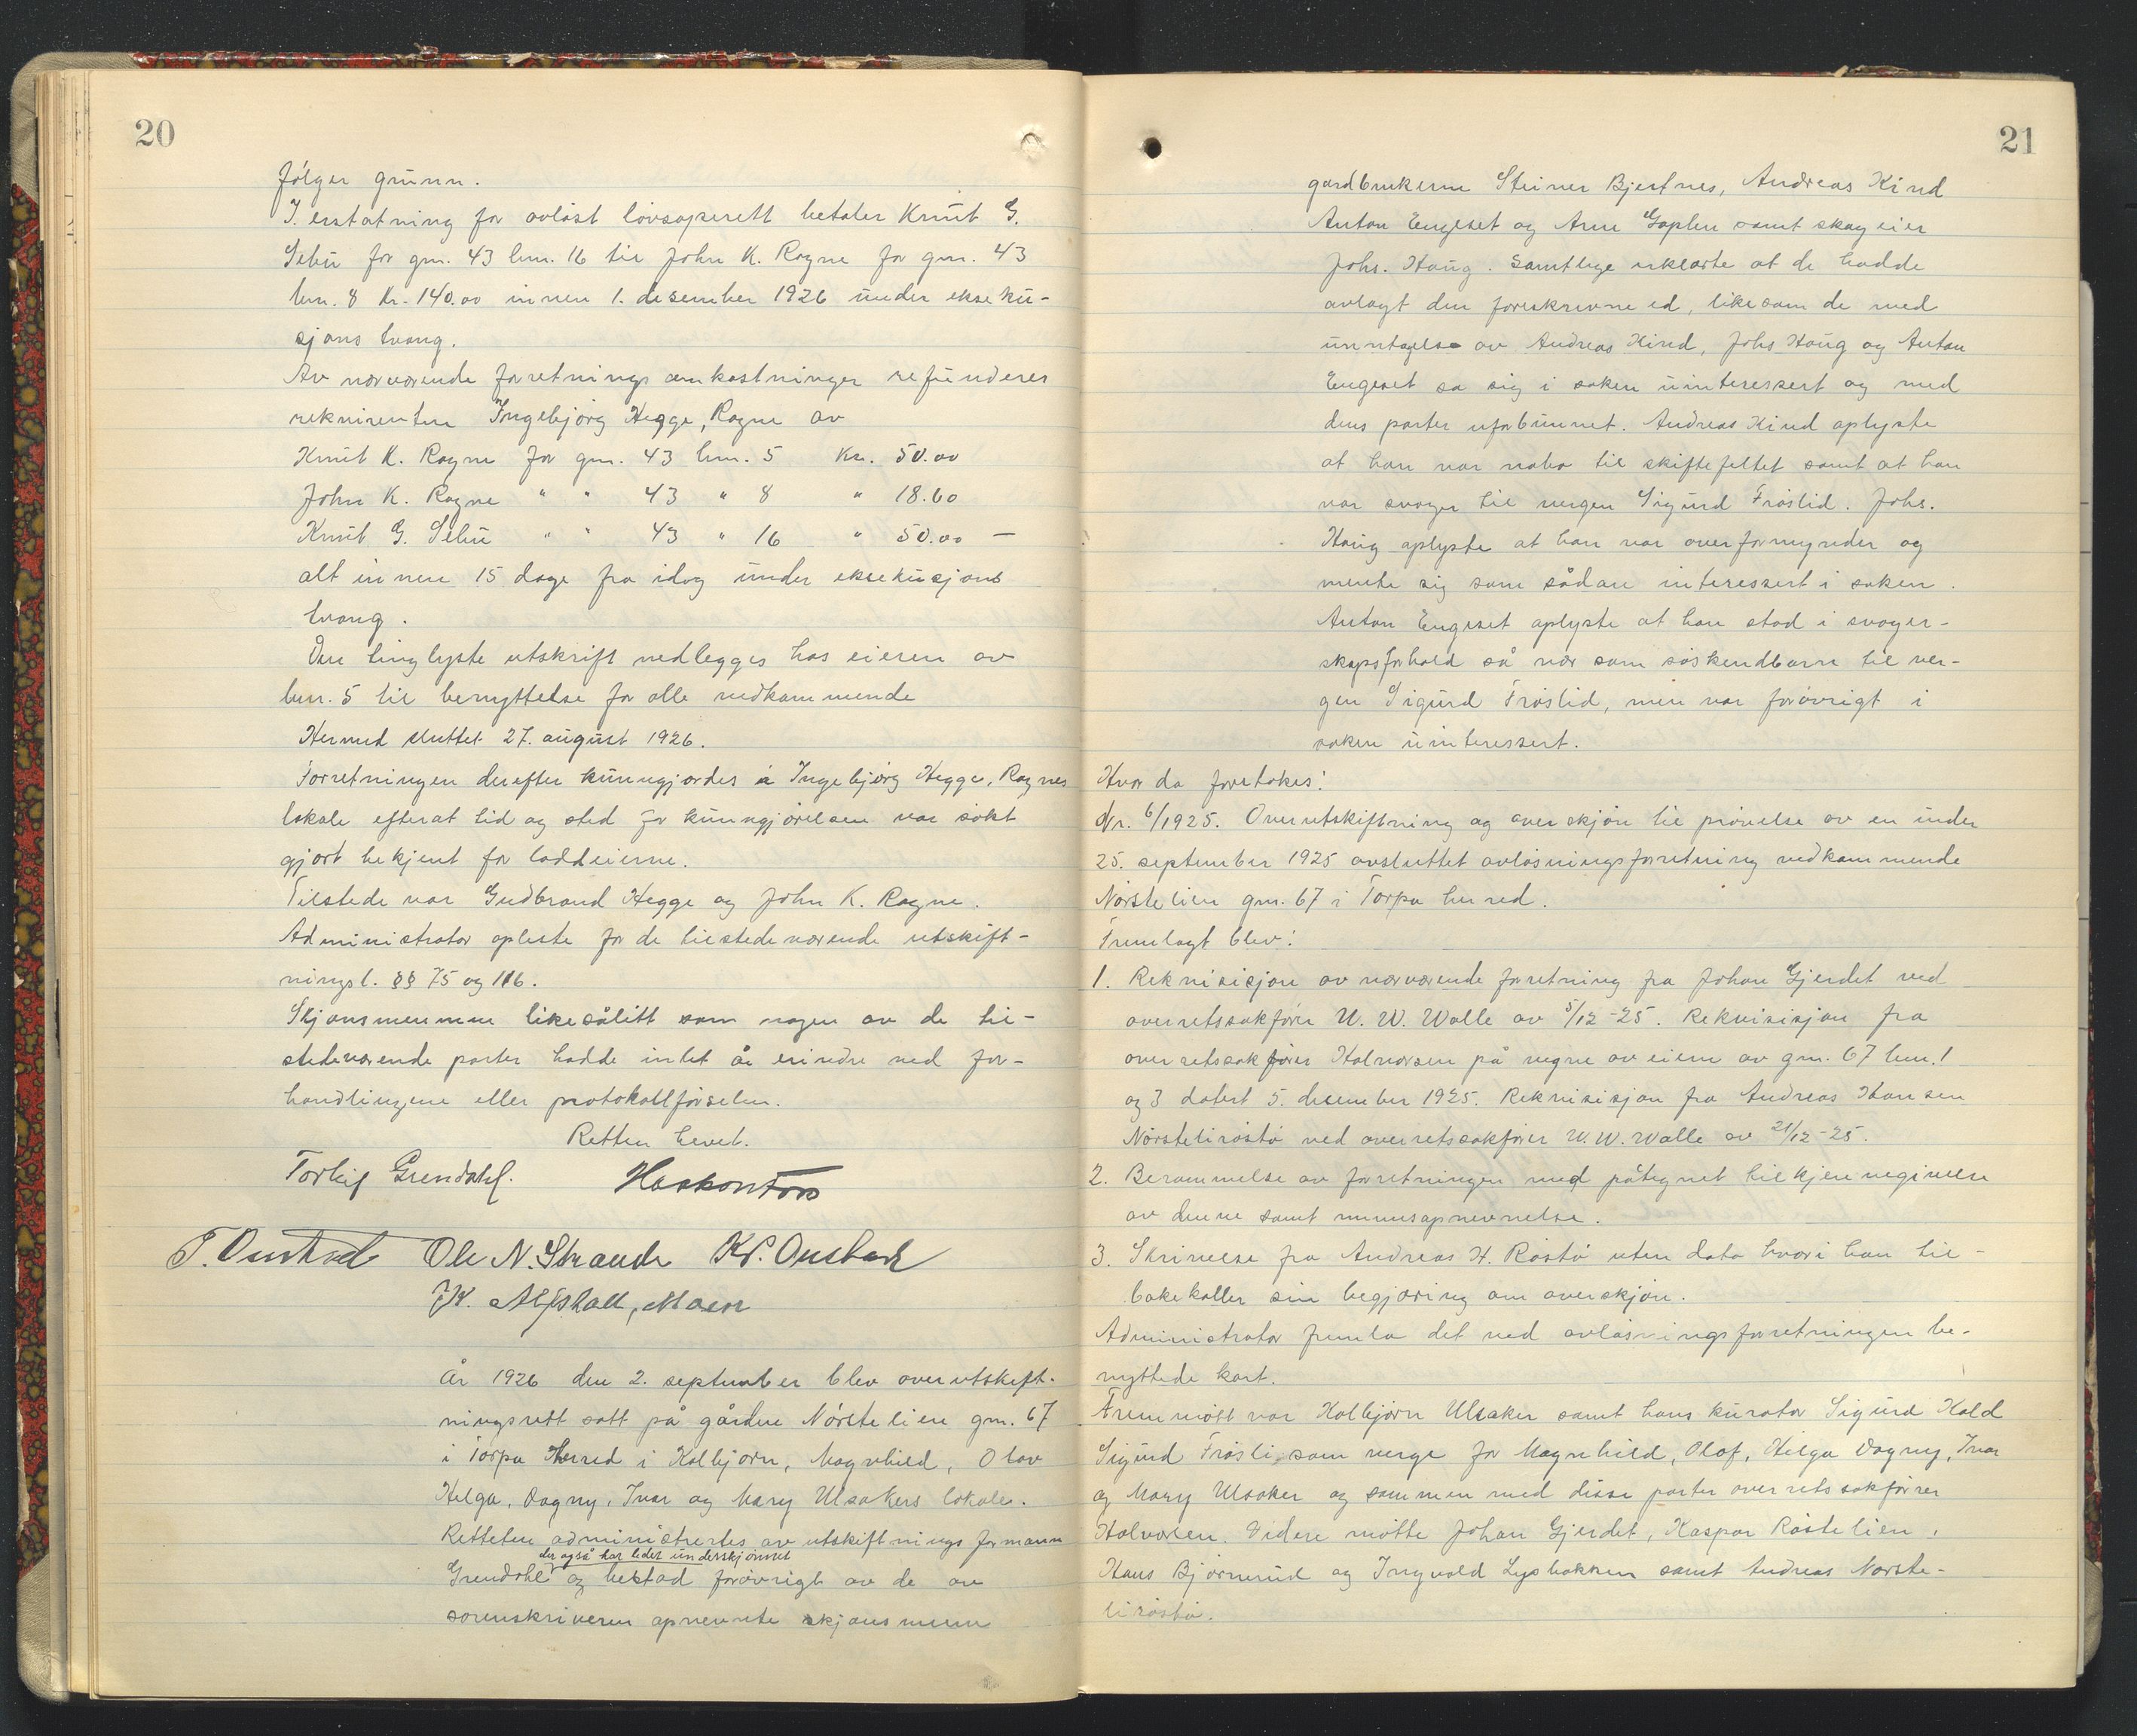 20
følger grunn.
I erstatning for avløst løvskperett betaler Knut G.
Sebu for gnr. 43 bnr. 16 til John K. Rogne for gnr. 43
bnr. 8 Kr. 140.00 innen 1. desember 1926 under ekseku-
sjons tvang.
Av nærværende foretnings omkostninger refunderes
rekvirenten Ingebjørg Hegge, Rogne av
Knut K. Rogne for gnr. 43 bnr. 5 Kr. 50.00
John K. Rogne " " 43 " 8 " 18.60
Knut G. Sebu " " 43 " 16 " 50.00 —
alt innen 15 dage fra idag under eksekusjons
tvang.
Den tinglyste utskrift nedlegges hos eieren av
bnr. 5 til benyttelse for alle vedkommende
Hermed sluttet 27. august 1926.
Forretningen derefter kunngjordes i Ingebjørg Hegge, Rognes
lokale efterat tid og sted for kunngjørelsen var søkt
gjort bekjent for loddeierne.
Tilstede var Gudbrand Hegge og John K. Rogne.
Administrator opleste for de tilstedeværende utskift-
ningsl. §§ 75 og 116.
Skjønsmennene likesålitt som nogen av de til-
stedeværende parter hadde intet å erindre ved for-
handlingene eller protokollførselen.
Retten hevet.
Torleif Grendahl. Haakon Fors
T. Onstad Ole N. Strande K. P. Onstad
K. Alfstad, Moen
År 1926 den 2. september blev overutskift-
ningsrett satt på gården Nørstelien gnr. 67
i Torpa Herred i Kolbjørn, Magnhild, Olav
Helga, Dagny, Ivar og Mary Ulsakers lokale.
Retteten administrertes av utskiftningsformann
der også har ledet underskjønnet
Grendahl og bestod forøvrigt av de av
sorenskriveren opnevnte skjønsmenn
21
gardbrukerne Steiner Bjertnes, Andreas Kind
Anton Engeset og Arne Goplen samt skogeier
Johs. Haug. Samtlige erklærte at de hadde
avlagt den foreskrevne ed, likesom de med
unntagelse av Andreas Kind, Johs Haug og Anton
Engeset sa sig i saken uinteressert og med
dens parter uforbunnet. Andreas Kind oplyste
at han var nabo til skiftefeltet samt at han
var svoger til vergen Sigurd Frøslid. Johs.
Haug oplyste at han var overformynder og
mente sig som sådan interessert i saken.
Anton Engeset oplyste at han stod i svoger-
skapsforhold så nær som søskendbarn til ver-
gen Sigurd Frøslid, men var forøvrigt i
saken uinteressert.
Hvor da foretokes:
Nr. 6/1925. Overutskiftning og overskjøn til prøvelse av en under
25. september 1925 avsluttet avløsningsforretning vedkommende
Nørstelien gnr. 67 i Torpa herred.
Fremlagt blev:
1. Rekvisisjon av nærværende forretning fra Johan Gjerdet ved
overretssakfører U. W. Walle av 5/12-25. Rekvisisjon fra
overretssakfører Halvorsen på vegne av eierne av gnr. 67 bnr. 1
og 3 datert 5. desember 1925. Rekvisisjon fra Andreas Hansen
Nørstelirøstø ved overretssakfører U. W. Walle av 21/12-25.
2. Berammelse av forretningen med påtegnet tilkjennegivelse
av denne samt mennsopnevnelse.
3. Skrivelse fra Andreas H. Røstø uten dato hvori han til-
bakekaller sin begjæring om overskjøn.
Administrator fremla det ved avløsningsforretningen be-
nyttede kart.
Fremmøtt var Kolbjørn Ulsaker samt hans kurator Sigurd Kold
Sigurd Frøsli som verge for Magnhild, Olaf, Helga Dagny, Ivar
og Mary Ulsaker og sammen med disse parter overretssakfører
Halvorsen. Videre møtte Johan Gjerdet, Kaspar Røstelien,
Hans Bjørnerud og Ingvald Lysbakken samt Andreas Nørste-
lirøstø.